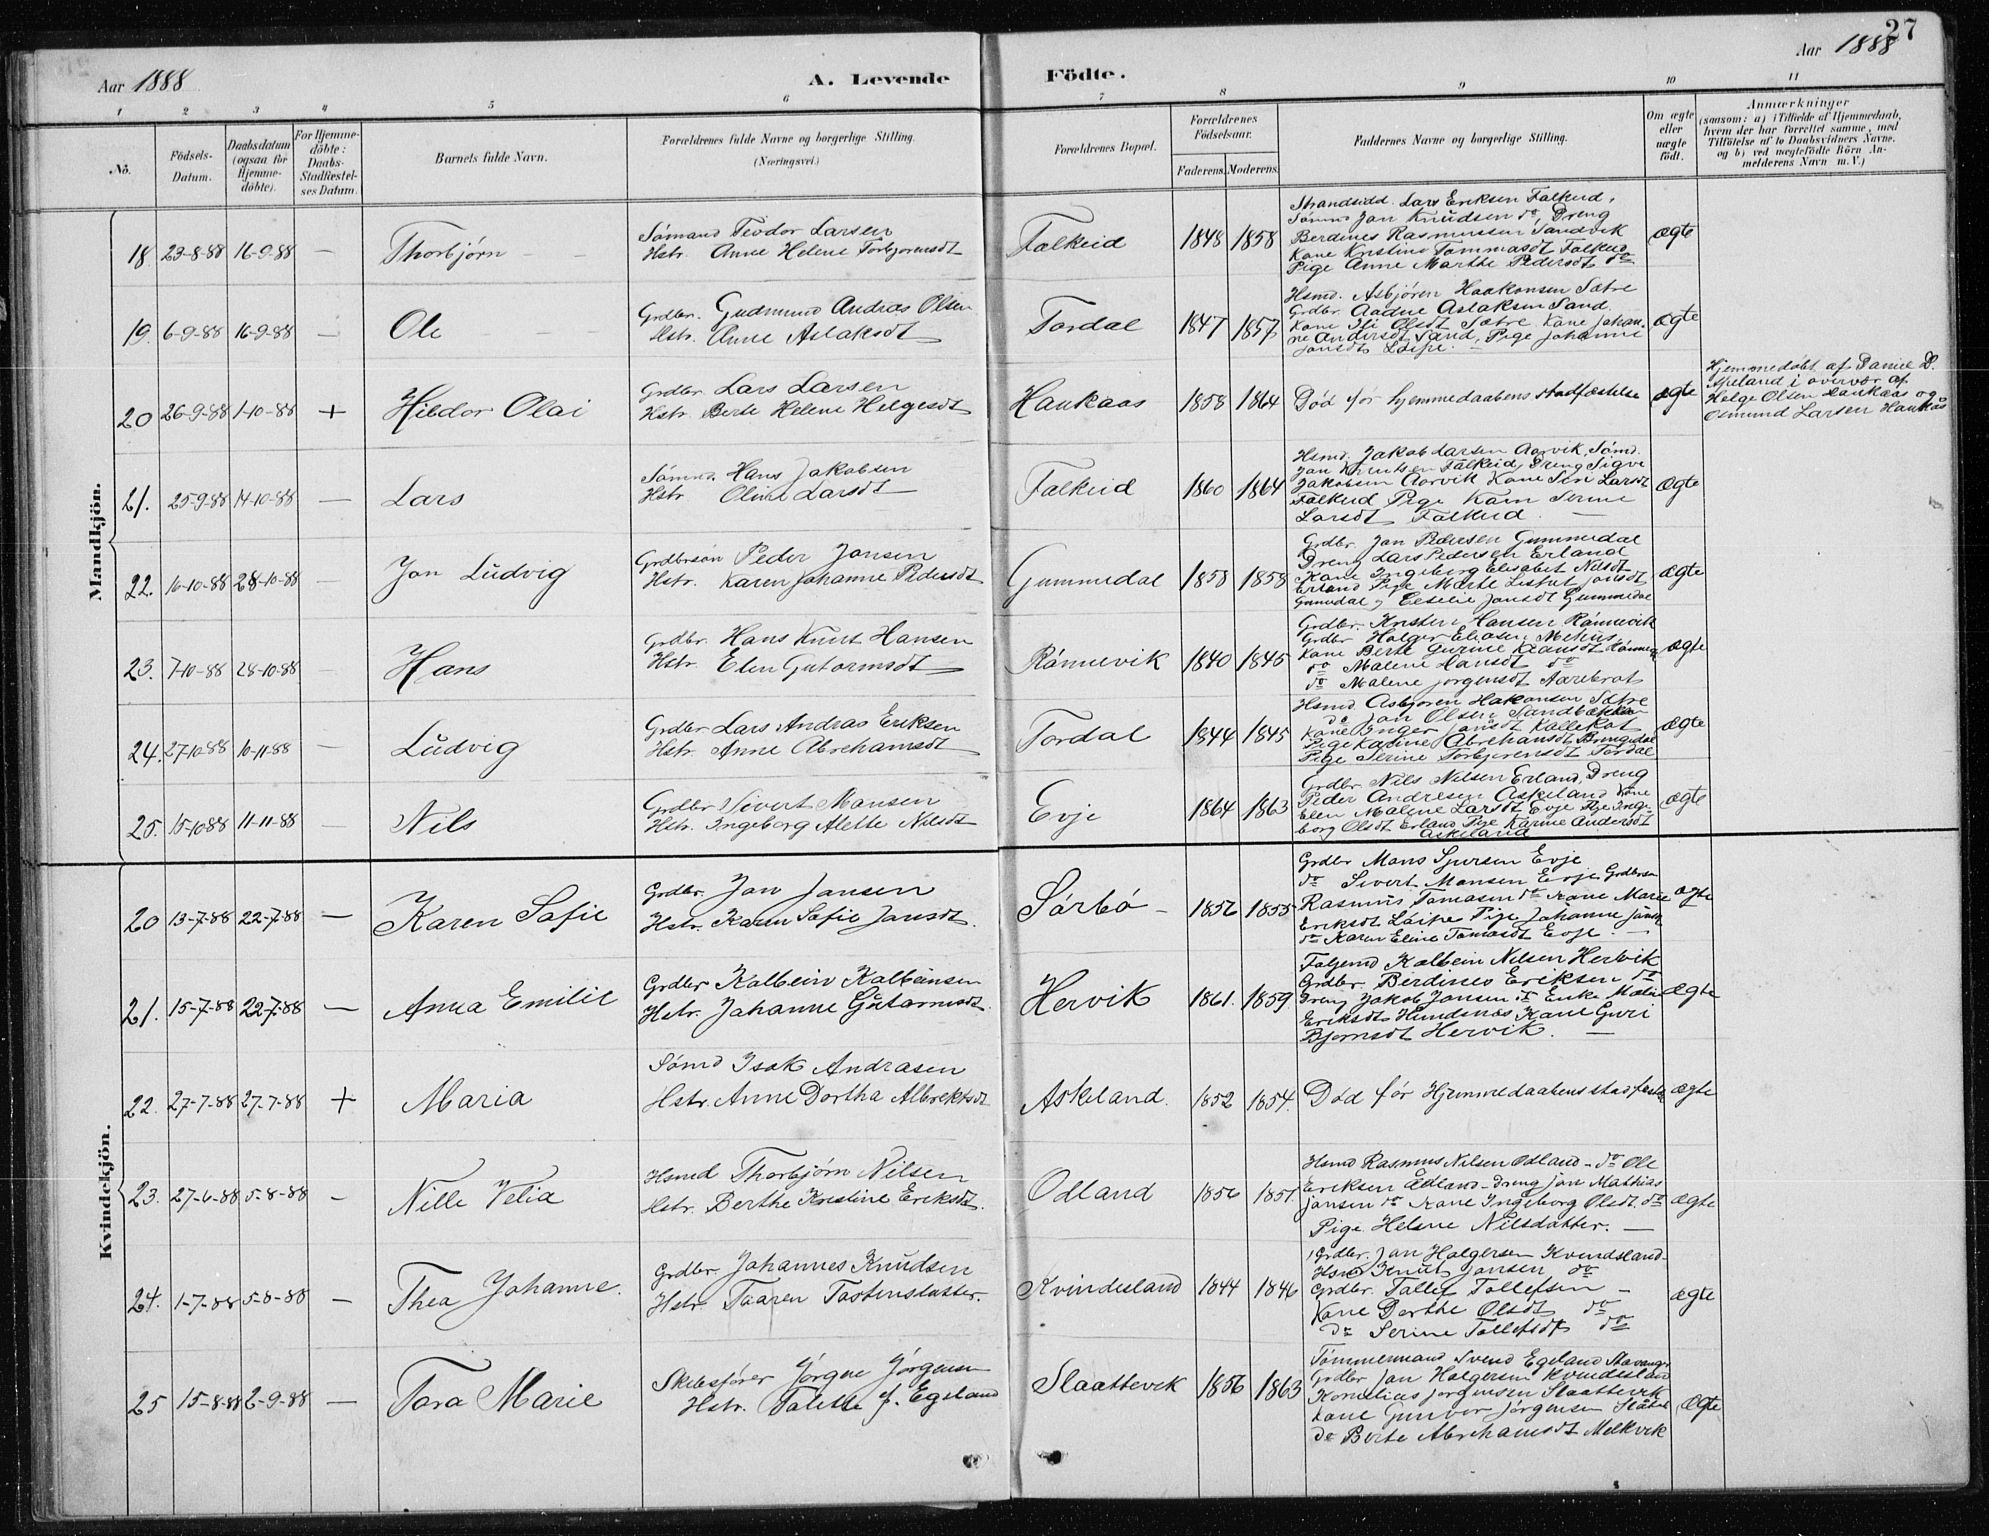 27
Aar 1888
A. Levende
Födte.
Aar 1888
1 2 3 4 5 6 7 8 9 10 11
No.
Födsels-
Datum.
Daabsdatum
(ogsaa for
Hjemme-
döbte).
For Hjemme-
döbte:
Daabs-
Stadfæstel-
ses Datum.
Barnets fulde Navn.
Forældrenes fulde Navne og borgerlige Stilling.
(Næringsvei.)
Forældrenes Bopæl.
Forældrenes
Födselsaar.
Faderens.
Moderens.
Faddernes Navne og borgerlige Stilling.
Om ægte
eller
uægte
födt.
Anmærkninger
(saasom: a) i Tilfælde af Hjemmedaab,
hvem der har forrettet samme, med
Tilföielse af to Daabsvidners Navne,
og b) ved uægtefödte Börn An-
melderens Navn m. V.)
Mandkjön.
18. 23-8-88 16-9-88 — Thorbjørn
Sømand Teodor Larsen
Hstr. Anne Helene Torbjørnsdt
Falkeid 1848 1858
Strandsidd. Lars Eriksen Falkeid,
Sømnd Jan Knudsen do, Dreng
Berdines Rasmussen Sandvik
Kone Kristine Tommasdt Falkeid
Pige Anne Marthe Pedersdt do
ægte
19. 6-9-88 16-9-88 — Ole
Grdbr. Gudmund Andreas Olsen
Hstr. Anne Aslaksdt
Tordal 1847 1857
Hsmd. Asbjøren Haakonsen Sætre
Grdbr. Aadne Aslaksen Sand
Kone Siri Olsdt Sætre Kone Johan-
ne Andersdt Sand, Pige Johanne
Jansdt
ægte
20 26-9-88 1-10-88 + Hildor Olai
Grdbr. Lars Larsen
Hstr. Berte Helene Helgesdt
Haukaas 1858 1864
Død før hjemmedaabens stadfæstelse
ægte
Hjemmedøbt af Daniel D.
Apeland i overvær af
Helge Olsen Haukaas og
Osmund Larsen Haukås
21. 25-9-88 14-10-88 — Lars
Sømnd. Hans Jakobsen
Hstr. Oline Larsdt
Falkeid 1860 1864
Hsmd. Jakob Larsen Aarvik, Sømd.
Jan Knutsen Falkeid, Dreng Sigve
Jakobsen Aarvik Kone Siri Larsdt
Falkeid Pige Karn Serine
Larsdt Falkeid. —
ægte
22. 16-10-88 28-10-88 — Jon Ludvig
Grdbrsøn Peder Jansen
Hstr. Karen Johanne Pedersdt
Gummedal 1858 1858
Grdbr. Jan Pedersen Gummedal
Dreng Lars Pedersen Erland
Kone Ingeborg Elisabet Nilsdt
Erland Pige Marte Lisbet Jansdt
Gumedal og Ceselie Jansdt Gummedal
ægte
23. 7-10-88 28-10-88 — Hans
Grdbr. Hans Knut Hansen
Hstr. Elen Gutormsdt
Rønnevik 1840 1845
Grdbr. Kristen Hansen Rønnevik
Grdbr Holger Eliasen
Kone Berte Gurine Hansdt Rønnevik
do Malene Hansdt do
do Malene Jørgensdt Aarebrot
ægte
24. 27-10-88 10-11-88 — Ludvig
Grdbr. Lars Andras Eriksen
Hstr. Anne Abrehamsdt
Tordal 1844 1845
Hsmd Asbjøren Hakonsen Sætre
do Jan Olsen Sandbækken
Kone Inger Jansdt Kallekot
Pige Karine Abrehamsdt
Pige Serine Torbjørensdt Tordal
ægte
25. 15-10-88 11-11-88 — Nils
Grdbr. Sivert Mansen
Hstr. Ingeborg Alette Nilsdt
Evje 1864 1863
Grdbr. Nils Nilsen Erland, Dreng
Peder Andresen Askeland Kone
Elen Malene Larsdt Evje Pige Inge-
borg Olsdt Erland Pige Karine Andersdt
Askeland
ægte
Kvindekjön.
20 13-7-88 22-7-88 — Karen Sofie
Grdbr. Jan Jansen
Hstr. Karen Sofie Jansdt.
Sørbø — 1856 1855
Grdbr Mons Sjursen Evje
do Sivert Mansen Evje Grdbrsøn
Rasmus Tomasen do Kone Marie
Eriksdt Pige Johanne Jansdt
do Karen Eline Tomasdt Evje. —
ægte
21. 15-7-88 22-7-88 — Anna Emilie
Grdbr Kolbein Kolbeinsen
Hstr. Johanne Gutormsdt.
Hervik 1861. 1859
Følgemd Kolbein Nilsen Hervik
Grdbr. Berdines Eriksen do
Dreng Jakob Jansen do Enke Malene
Eriksdt Hundsnæs Kone Guri
Bjørnsdt Hervik. —
ægte
22. 27-7-88 27-7-88 + Maria
Sømd Isak Andrasen
Hstr. Anne Dortha Albrektsdt
Askeland. 1852 1854.
Død før Hjemmedaabens stadfæstelse
ægte
23. 27-6-88 5-8-88 — Nille Velia
Hsmd Thorbjørn Nilsen
Hstr. Berthe Kristine Eriksdt.
Odland 1856 1851.
Hsmd Rasmus Nilsen Odland — do Ole
Eriksen Ødland — Dreng Jan Mathias
Jansen do Kone Ingeborg Olsdt. do
Pige Helene Nilsdatter. —
ægte
24. 1-7-88 5-8-88 — Thea Johanne.
Grdbr. Johannes Knudsen
Hstr. Taaren Tostensdatter.
Kvindesland 1844 1846
Grdbr. Jan Holgersen Kvindsland
Hsmd Knut Jansen do
Grdbr. Tollef Tollefsen —
Kone Dorthe Olsdt do
do Serine Tollefsdt do
ægte
25 15-8-88 2-9-88 — Tora Marie
Skibsfører Jørgne Jørgensen
Hstr. Talette f. Egeland
Slaattevik 1856 1863
Tømmermand Svend Egeland Stavanger
Grdbr Jan Holgersen Kvindesland
Kornelius Jørgensen Slaattevik
Kone Gunvor Jørgensen
do Berte Abrehamsdt Melkevik
ægte